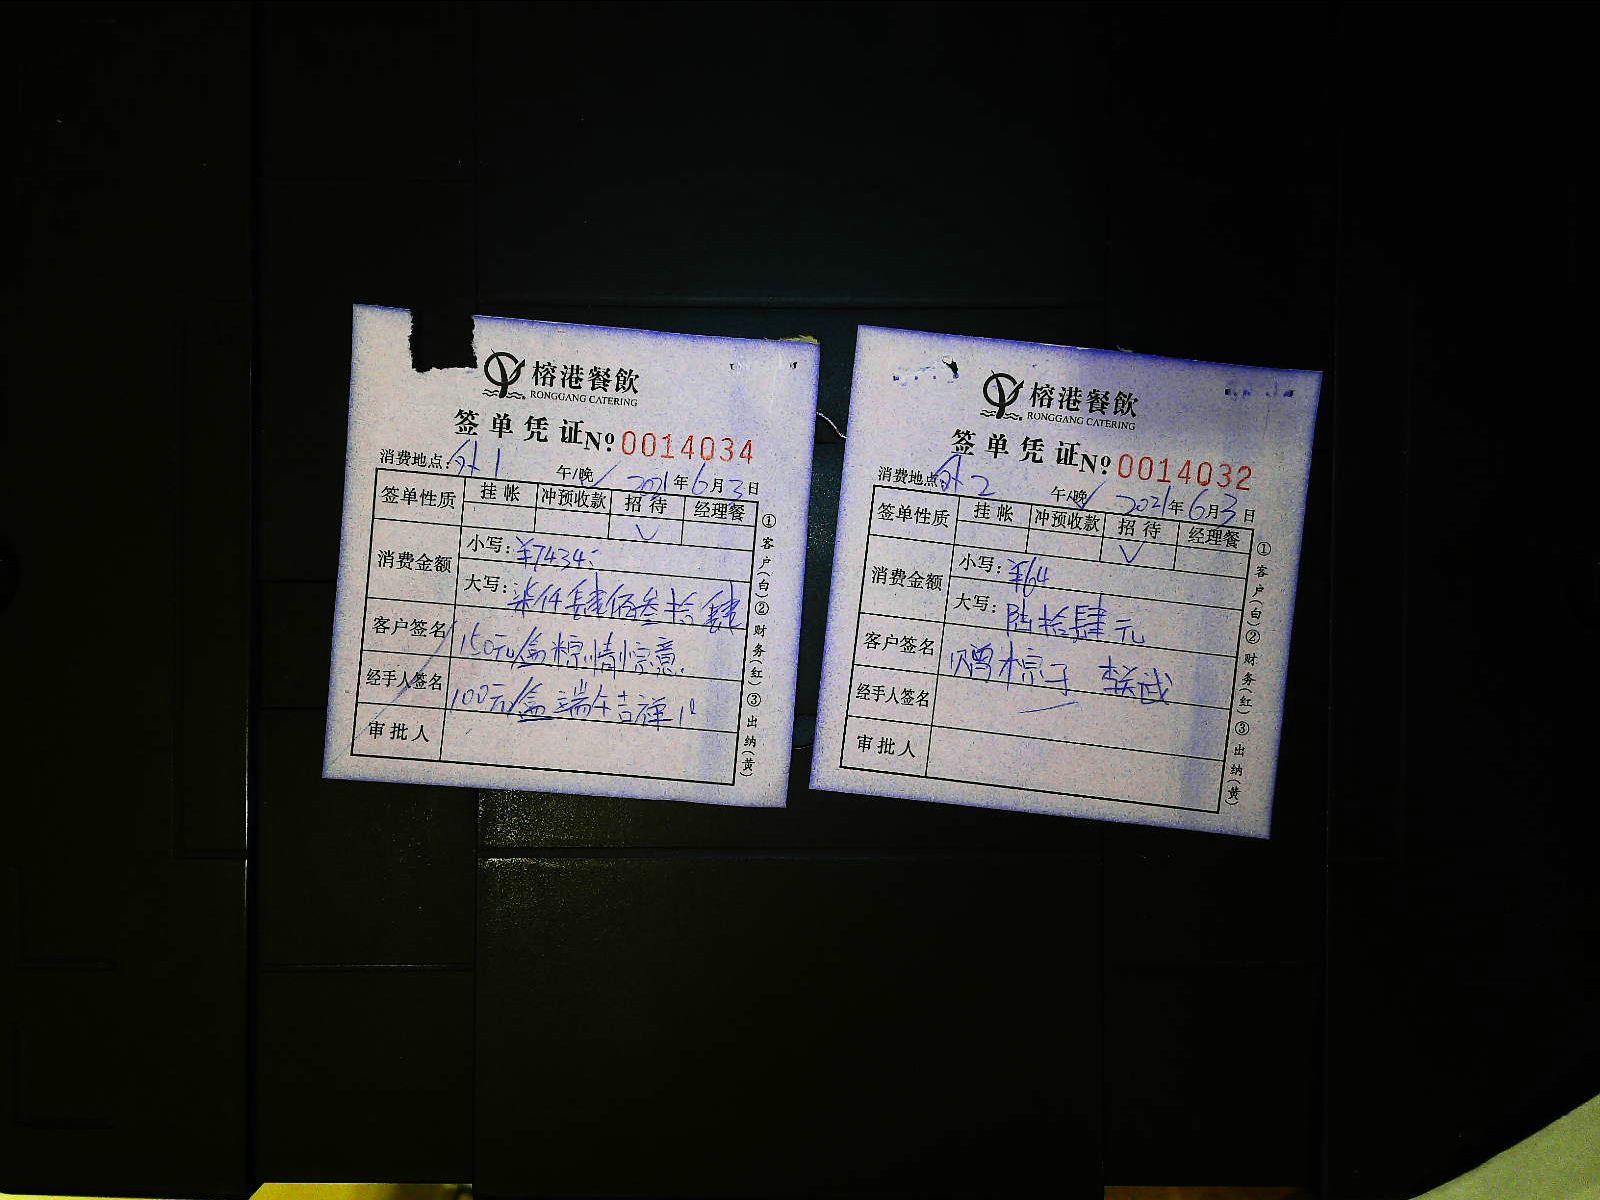 榕港餐飲
RONGGANG CATERING
签单凭证 No 0014034
消费地点：外1 午/晚 2021年6月3日
签单性质 挂帐 冲预收款 招待 经理餐
√
消费金额 小写：¥7434:
大写：柒仟肆佰叁拾肆
客户签名 150元/盒粽情惊意.
经手人签名 100元/盒端午吉祥
审批人
①客户(白)②财务(红)③出纳(黄)
榕港餐飲
RONGGANG CATERING
签单凭证 No 0014032
消费地点：外2 午/晚 2021年6月3日
签单性质 挂帐 冲预收款 招待 经理餐
√
消费金额 小写：¥64
大写：陆拾肆元
客户签名 赠粽子
经手人签名
审批人
①客户(白)②财务(红)③出纳(黄)